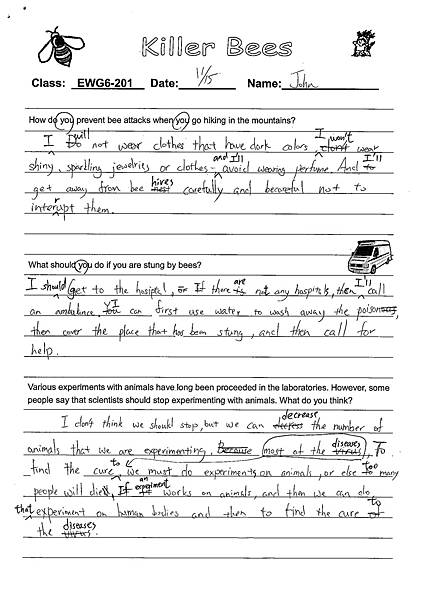 Killer Bees
Class: EWG6-201 Date: 11/15 Name: John
How do you prevent bee attacks when you go hiking in the mountains?
I will not wear clothes that have dark colors, I won't wear
shiny, sparkling jewelries or clothes and I'll avoid wearing perfume. And I'll
get away from bee hives carefully and becareful not to
interrupt them.
What should you do if you are stung by bees?
I should get to the hospital, If there are not any hospitals, then I'll call
an ambulance. I can first use water to wash away the
then cover the place that has been stung, and then call for
help.
Various experiments with animals have long been proceeded in the laboratories. However, some
people say that scientists should stop experimenting with animals. What do you think?
I don't think we should stop, but we can decrease the number of
animals that we are experimenting, most of the diseases, To
find the cure to we must do experiments on animals, or else too many
people will die. If an experiment works on animals, and then we can do
that experiment on human bodies and then to find the cure to
the diseases.